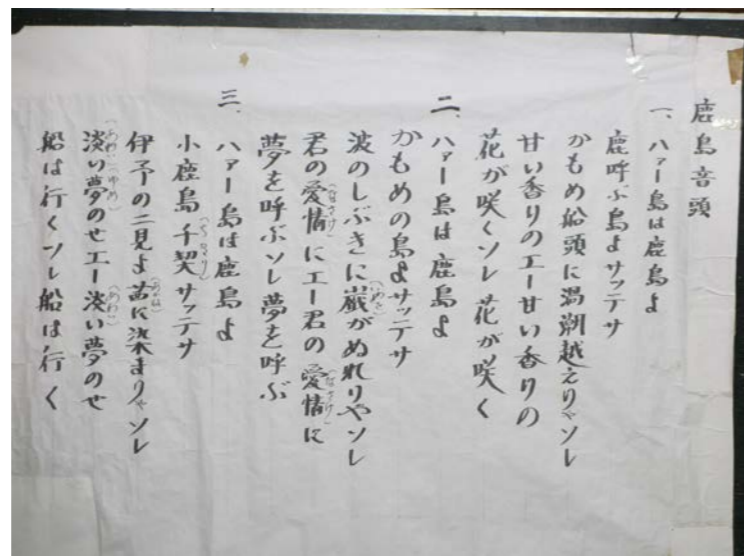 鹿島音頭
一、ハァー島は鹿島よ
鹿呼ぶ島よサッテサ
かもめ船頭に渦潮越えりゃソレ
甘い香りのエー甘い香りの
花が咲くソレ花が咲く
二、ハァー島は鹿島よ
かもめの島よサッテサ
波のしぶきに巌がぬれりやソレ
君の愛情(なさけ)にエー君の愛情(なさけ)に
夢を呼ぶソレ夢を呼ぶ
三、ハァー島は鹿島よ
小鹿島千契(ちぎり)サッテサ
伊予の二見よ茜(あかね)に染まりゃソレ
淡い夢(あわいゆめ)のせエー淡い(あわい)夢のせ
船は行くソレ船は行く